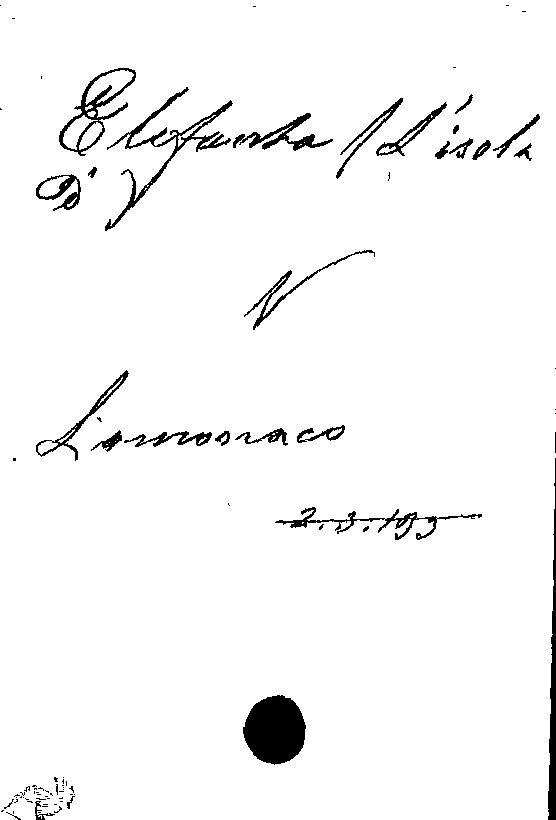 Elefanta (L'isola
D')
V
Lomonaco
2.3.193